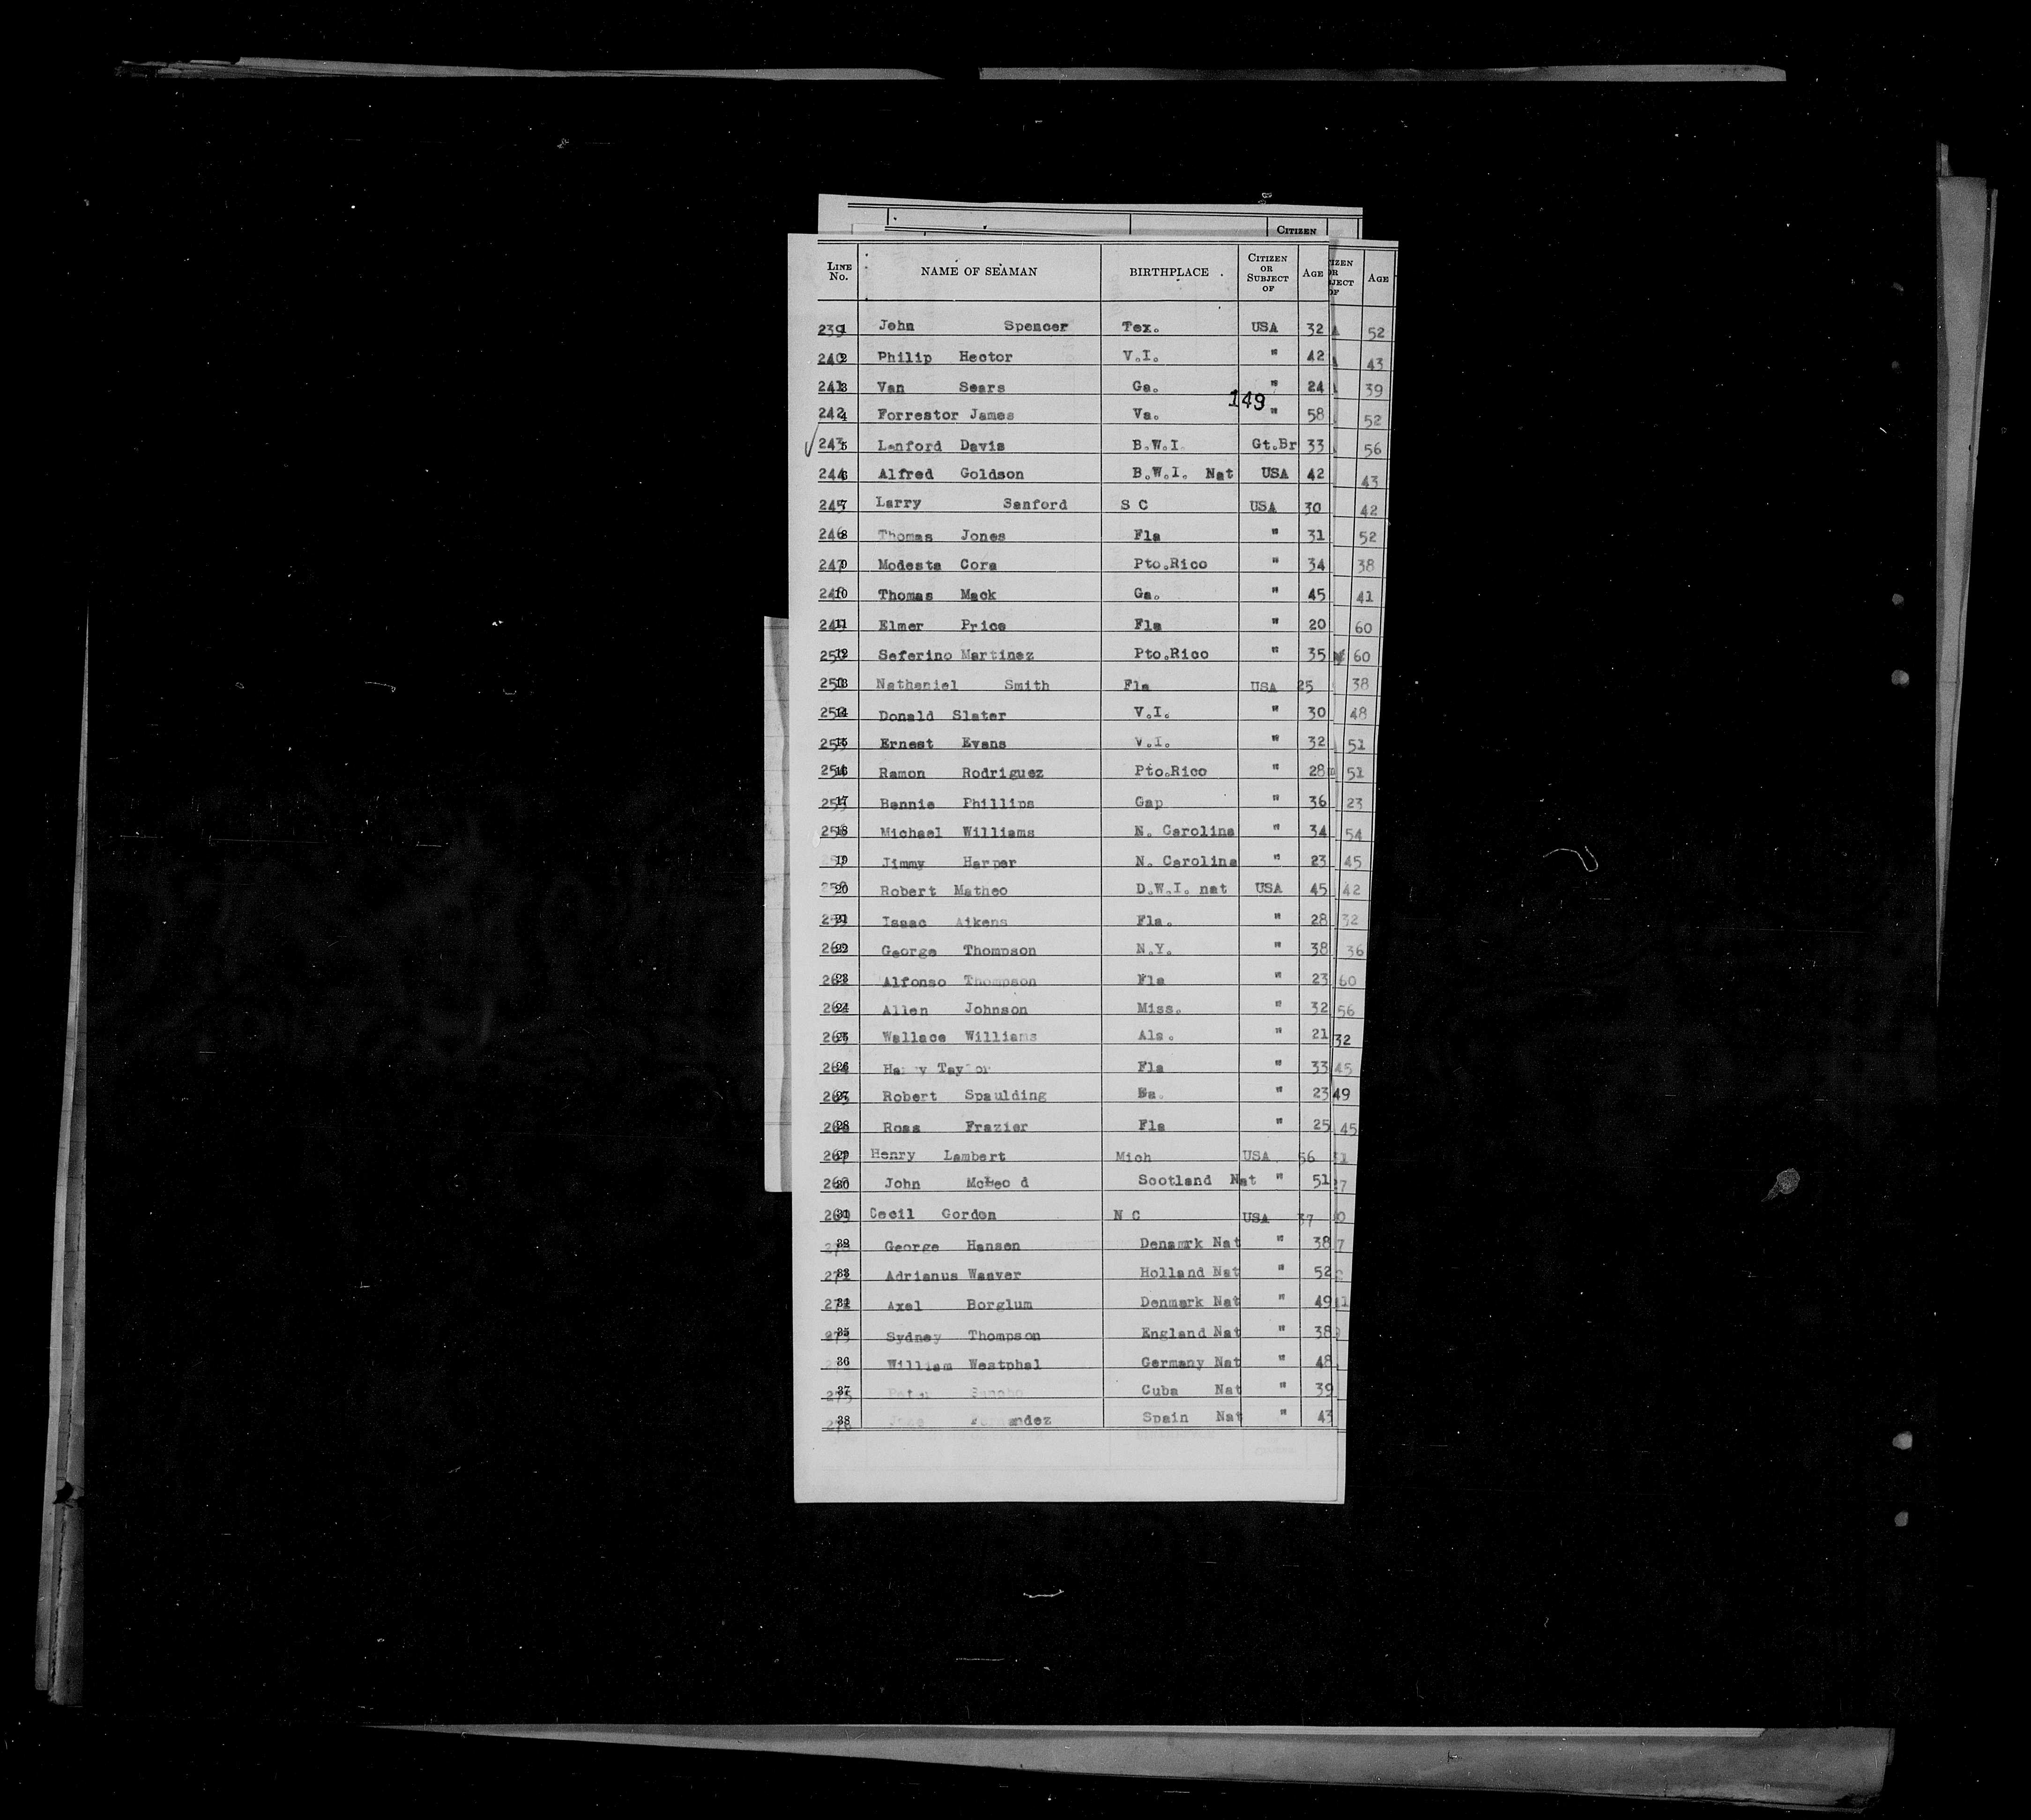 CITIZEN
LINE No. NAME OF SEAMAN BIRTHPLACE CITIZEN OR SUBJECT OF AGE AGE
239 1 John Spencer Tex. USA 32 52
240 2 Philip Hector V.I. " 42 43
241 3 Van Sears Ga. " 24 39
149
242 4 Forrestor James Va. " 58 52
243 5 Lanford Davis B.W.I. Gt.Br 33 56
244 6 Alfred Goldson B.W.I. Nat USA 42 43
245 7 Larry Sanford S C USA 30 42
246 8 Thomas Jones Fla " 31 52
247 9 Modesta Cora Pto.Rico " 34 38
248 10 Thomas Mack Ga. " 45 41
249 11 Elmer Price Fla " 20 60
12 Seferino Martinez Pto.Rico " 35 60
13 Nathaniel Smith Fla USA 25 38
14 Donald Slater V.I. " 30 48
15 Ernest Evans V.I. " 32 51
254 16 Ramon Rodriguez Pto.Rico " 28 51
255 17 Bennie Phillips Gap " 36 23
256 18 Michael Williams N. Carolina " 34 54
19 Jimmy Harper N. Carolina " 23 45
20 Robert Matheo D.W.I. nat USA 45 42
259 21 Isaac Aikens Fla. " 28 32
260 22 George Thompson N.Y. " 38 36
23 Alfonso Thompson Fla " 23 60
24 Allen Johnson Miss. " 32 56
263 25 Wallace Williams Ala. " 21 32
264 26 Harry Taylor Fla " 33 45
265 27 Robert Spaulding " 23 49
266 28 Ross Frazier Fla " 25 45
267 29 Henry Lambert Mich USA 56
268 30 John McLeod Scotland Nat " 51
269 31 Cecil Gordon N C USA 37
32 George Hansen Denamrk Nat " 38
33 Adrianus Weaver Holland Nat " 52
34 Axel Borglum Denmark Nat " 49
35 Sydney Thompson England Nat " 38
36 William Westphal Germany Nat " 48
275 37 Cuba Nat " 39
276 38 Spain Nat " 43